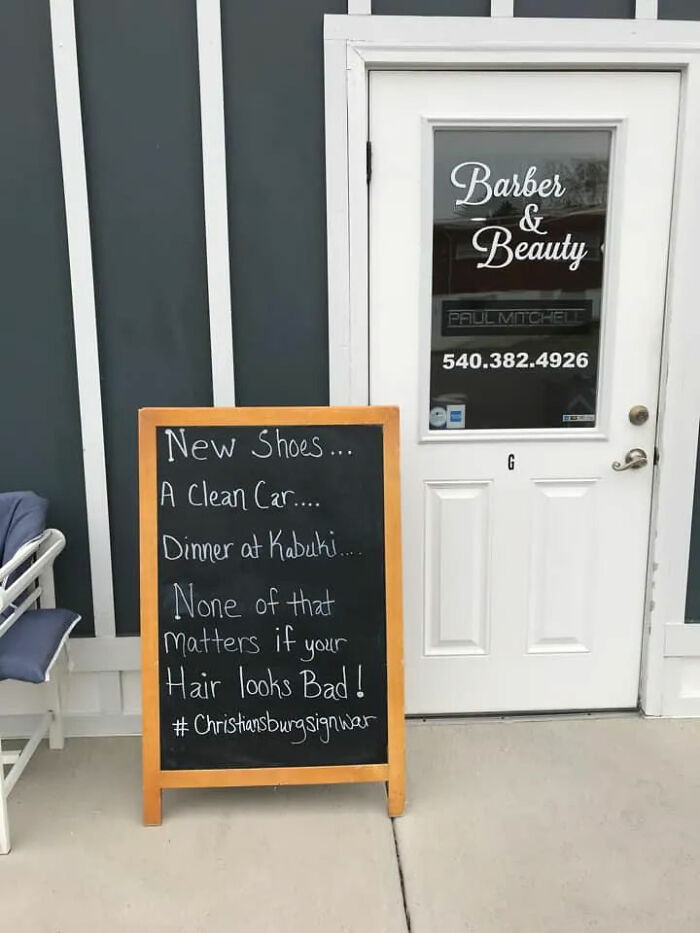 Barber
&
Beauty
PAUL MITCHELL
540.382.4926
G
New Shoes...
A Clean Car....
Dinner at Kabuki....
None of that
matters if your
Hair looks Bad!
# Christiansburgsignwar